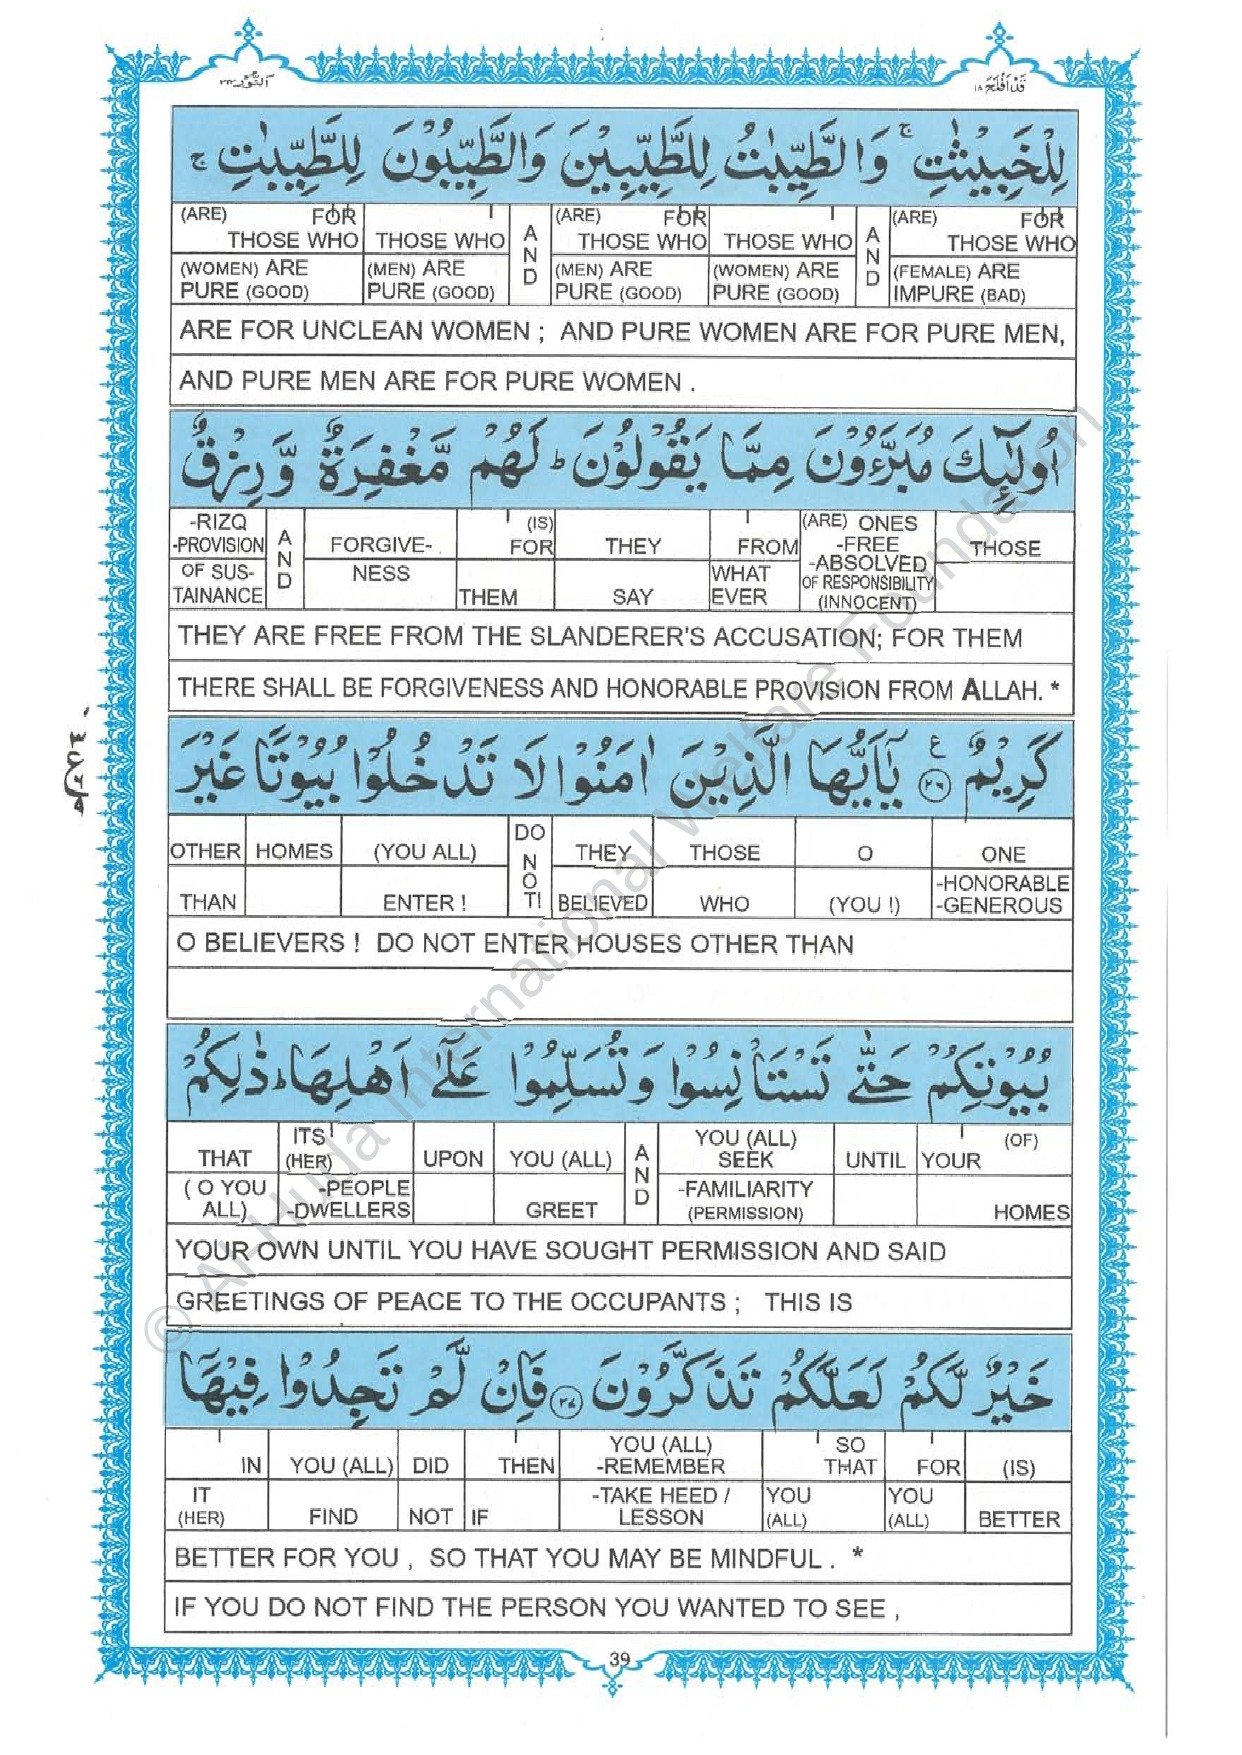 قَدْ اَفْلَحَ ١٨
اَلنُّوْر ٢٤
لِلْخَبِيْثٰتِ ۚ وَالطَّيِّبٰتُ لِلطَّيِّبِيْنَ وَالطَّيِّبُوْنَ لِلطَّيِّبٰتِ ۚ
(ARE) FOR THOSE WHO THOSE WHO AND (ARE) FOR THOSE WHO THOSE WHO AND (ARE) FOR THOSE WHO
(WOMEN) ARE PURE (GOOD) (MEN) ARE PURE (GOOD) (MEN) ARE PURE (GOOD) (WOMEN) ARE PURE (GOOD) (FEMALE) ARE IMPURE (BAD)
ARE FOR UNCLEAN WOMEN ; AND PURE WOMEN ARE FOR PURE MEN,
AND PURE MEN ARE FOR PURE WOMEN .
اُولٰٓئِكَ مُبَرَّءُوْنَ مِمَّا يَقُوْلُوْنَ ؕ لَهُمْ مَّغْفِرَةٌ وَّ رِزْقٌ
-RIZQ -PROVISION AND FORGIVE- (IS) FOR THEY FROM (ARE) ONES -FREE -ABSOLVED THOSE
OF SUS- TAINANCE NESS THEM SAY WHAT EVER OF RESPONSIBILITY (INNOCENT)
THEY ARE FREE FROM THE SLANDERER'S ACCUSATION; FOR THEM
THERE SHALL BE FORGIVENESS AND HONORABLE PROVISION FROM ALLAH. *
كَرِيْمٌ ﴿٢٦﴾ ع يٰۤاَيُّهَا الَّذِيْنَ اٰمَنُوْا لَا تَدْخُلُوْا بُيُوْتًا غَيْرَ
OTHER HOMES (YOU ALL) DO NOT! THEY THOSE O ONE
THAN ENTER ! BELIEVED WHO (YOU !) -HONORABLE -GENEROUS
O BELIEVERS ! DO NOT ENTER HOUSES OTHER THAN
بُيُوْتِكُمْ حَتّٰى تَسْتَاْنِسُوْا وَ تُسَلِّمُوْا عَلٰٓى اَهْلِهَا ؕ ذٰلِكُمْ
THAT ITS (HER) UPON YOU (ALL) AND YOU (ALL) SEEK UNTIL YOUR (OF)
( O YOU ALL) -PEOPLE -DWELLERS GREET -FAMILIARITY (PERMISSION) HOMES
YOUR OWN UNTIL YOU HAVE SOUGHT PERMISSION AND SAID
GREETINGS OF PEACE TO THE OCCUPANTS ; THIS IS
خَيْرٌ لَّكُمْ لَعَلَّكُمْ تَذَكَّرُوْنَ ﴿٢٧﴾ فَاِنْ لَّمْ تَجِدُوْا فِيْهَاۤ
IN YOU (ALL) DID THEN YOU (ALL) -REMEMBER SO THAT FOR (IS)
IT (HER) FIND NOT IF -TAKE HEED / LESSON YOU (ALL) YOU (ALL) BETTER
BETTER FOR YOU , SO THAT YOU MAY BE MINDFUL . *
IF YOU DO NOT FIND THE PERSON YOU WANTED TO SEE ,
39
© Al-Huda International Welfare Foundation